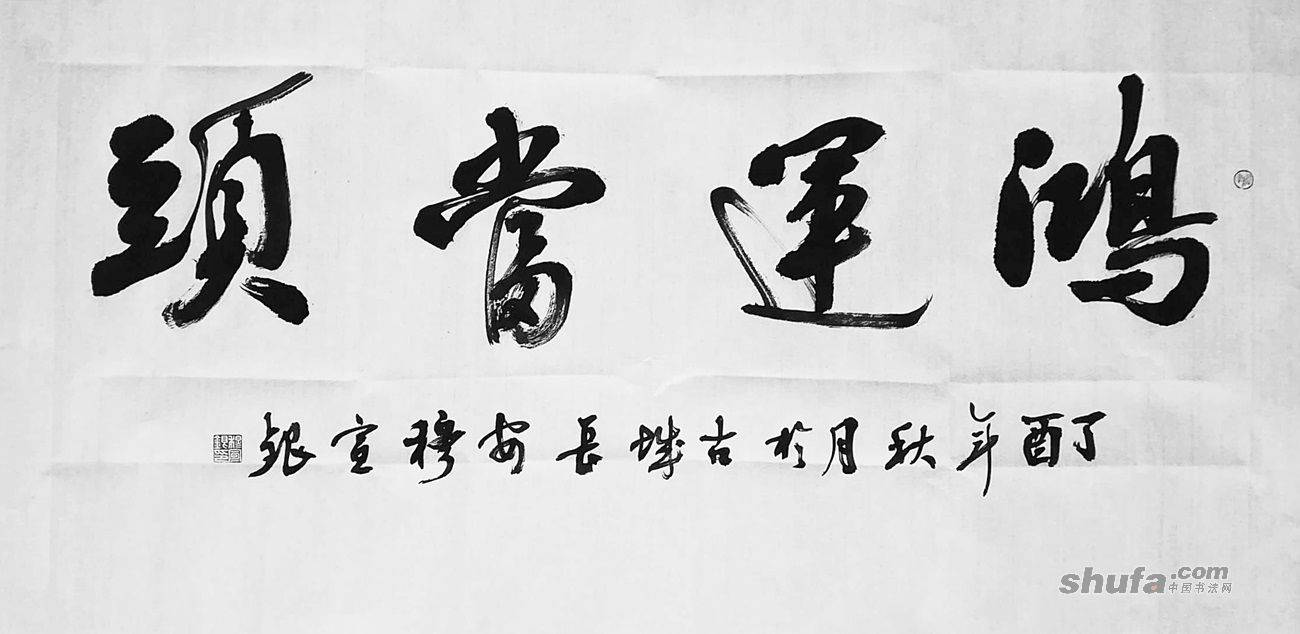 鴻運當頭
丁酉年秋月於古城長安穆宣銀
shufa.com
中国书法网